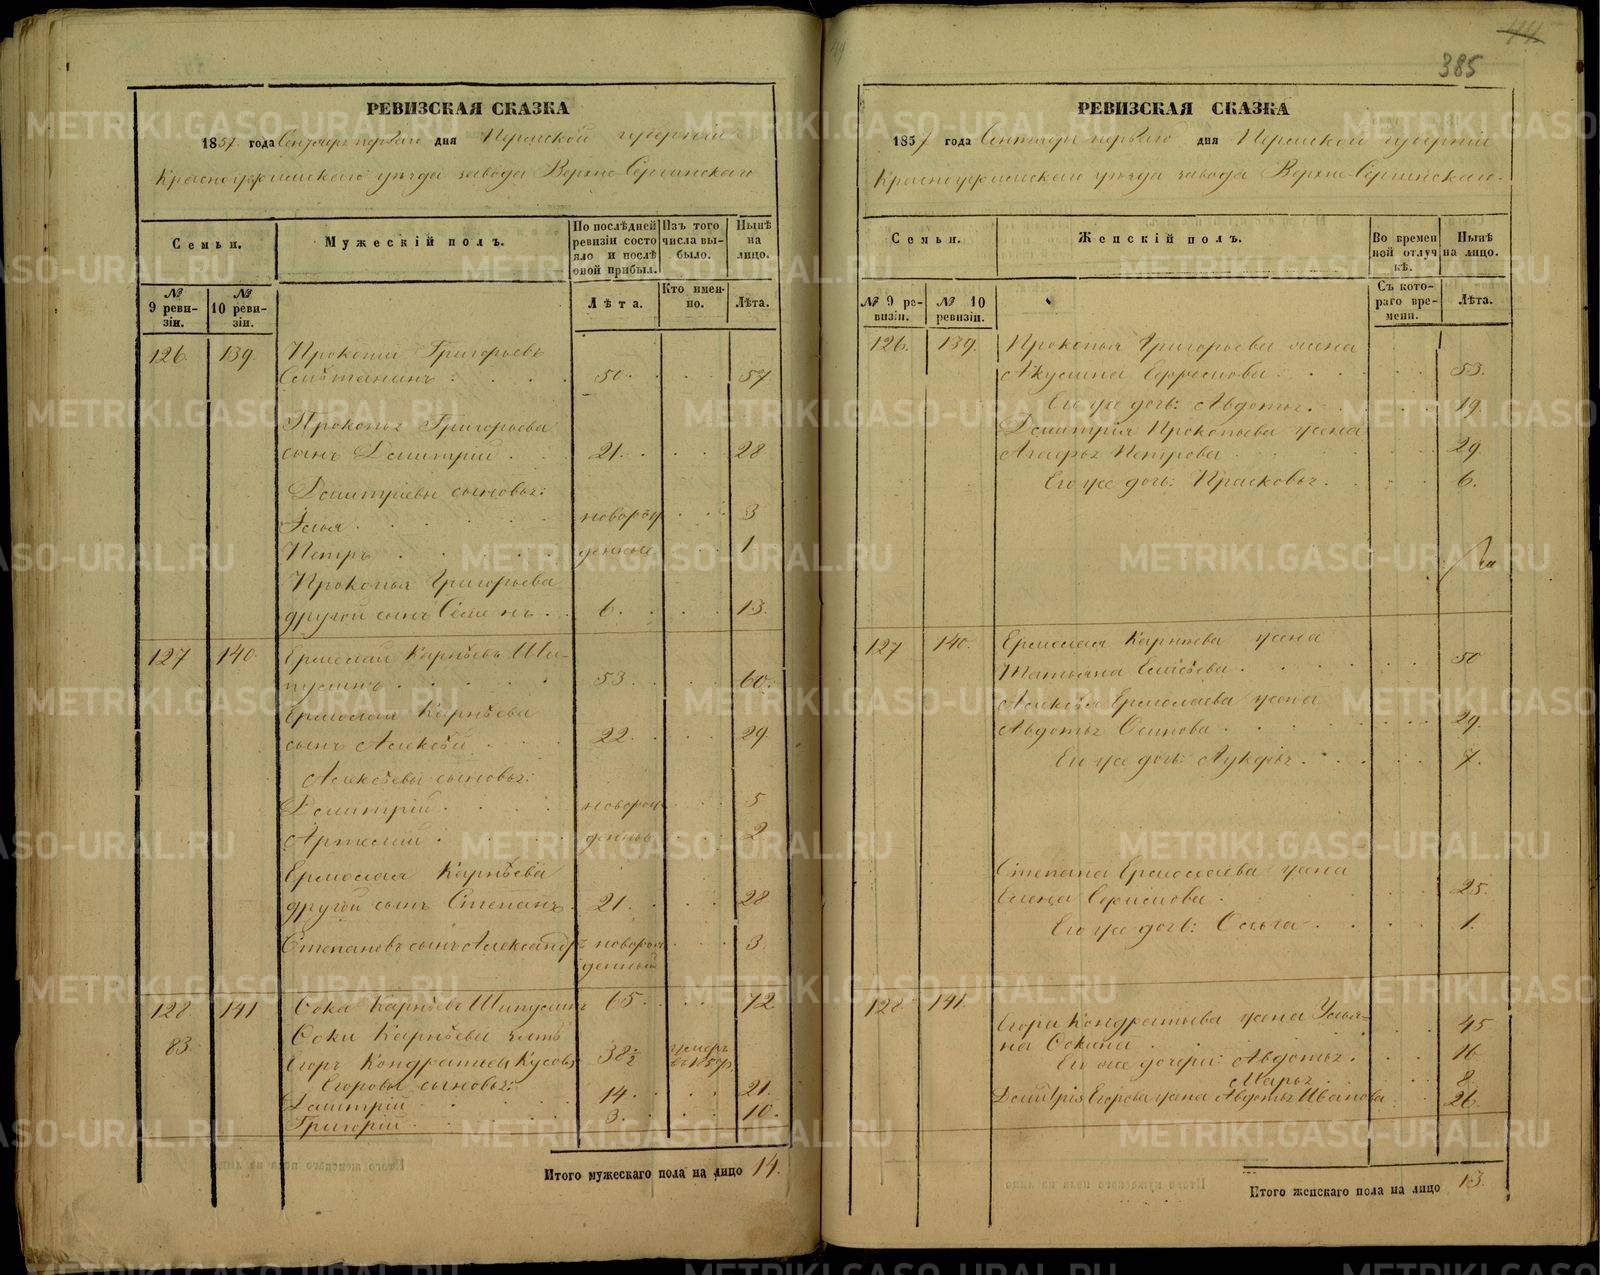 РЕВИЗСКАЯ СКАЗКА
1857 года Сентября перваго дня Пермской губерніи
Красноуфимскаго уезда завода Верхне-Сергинскаго
Семьи.
Мужескій полъ.
По последней ревизіи состояло и после оной прибыл.
Изъ того числа выбыло.
Ныне на лицо.
№ 9 ревизіи.
№ 10 ревизіи.
Лета.
Кто именно.
Лета.
126. 139. Прокопій Григорьевъ
50. 57
Прокопья Григорьева
сынъ Дмитрий 21. 28
Дмитріевы сыновья:
Илья новорож 3
Петръ денные 1
Прокопья Григорьева
другой сынъ Семенъ 6. 13.
127 140. Ермолай Карпеевъ Ши-
пусинъ 53 60.
Ермолая Карпеева
сынъ Алексей 22. 29.
Алексеевы сыновья:
Дмитрій новорож 5
Артемій денные 2
Ермолая Карпеева
другой сынъ Степанъ. 21. 28
Степановъ сынъ Александръ новорож 3.
денный
128 141 Фока Карпеевъ Шипусинъ 65. 72
83. Фоки Карпеева зять
Егоръ Кондратьевъ Кусовъ 38½ умеръ
Егоровы сыновья:
Дмитрій 14. 21.
Григорій 3. 10.
Итого мужескаго пола на лицо 14.
44.
385
РЕВИЗСКАЯ СКАЗКА
1857 года Сентября перваго дня Пермской губерніи
Красноуфимскаго уезда завода Верхне-Сергинскаго.
Семьи.
Женскій полъ.
Во временной отлучке.
Ныне на лицо.
№ 9 ревизіи.
№ 10 ревизіи.
Съ котораго времени.
Лета.
126. 139. Прокопья Григорьева жена
Акулина Ефремова 53.
Его же дочь: Авдотья. 19.
Дмитрія Прокопьева жена
Петрова 29.
Его же дочь: Прасковья. 6.
127 140. Ермолая Карпеева жена
Татьяна Елисеева. 50
Алексея Ермолаева жена
Авдотья Осипова 29.
Его же дочь: Лукерья. 7.
Степана Ермолаева жена
Елена 25.
Его же дочь: Ольга 1.
128. 141. Егора Кондратьева жена Улья-
на Фокина. 45
Его же дочери: Авдотья. 16
Марья 8.
Дмитрія Егорова жена Авдотья Иванова 26.
Итого женскаго пола на лицо 13.
METRIKI.GASO-URAL.RU